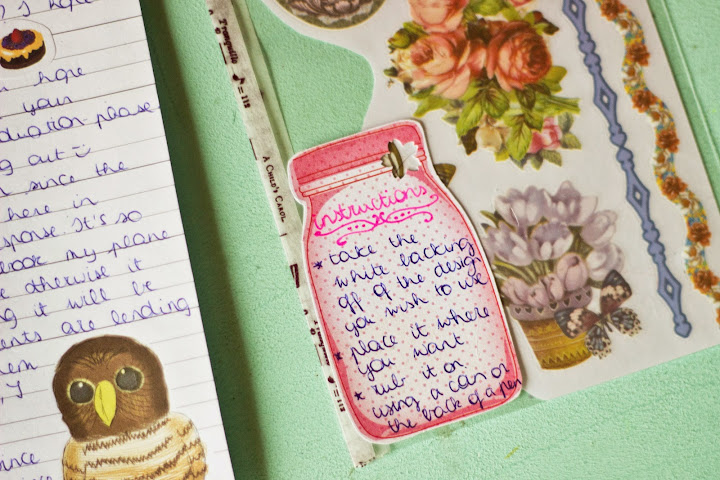 hope
hope
your
please
out
since the
here in
response. It's so
book my plane
otherwise it
g it will be
ents are lending
hem
, I
since
Tranquillo ♩ = 112
A CHILD'S CAROL
instructions
* take the
white backing
off of the design
you wish to use
* place it where
you want
* rub it on
using a coin or
the back of a pen